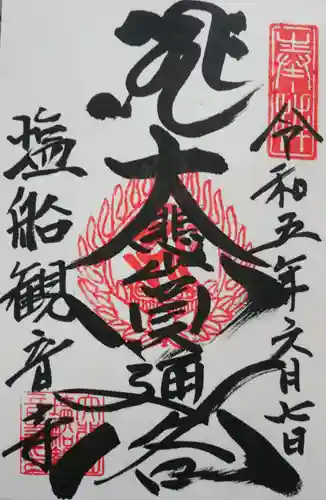 奉拝
令和五年六月七日
大悲圓通閣
塩船観音寺